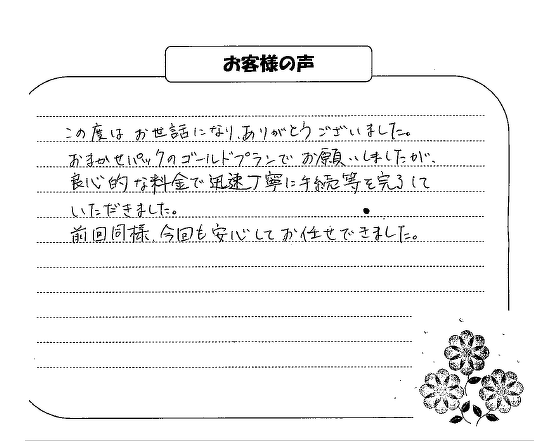 お客様の声
この度は お世話になり、ありがとうございました。
おまかせパックのゴールドプランで お願いしましたが、
良心的な料金で迅速丁寧に手続等を完了して
いただきました。
前回同様、今回も安心して お任せできました。